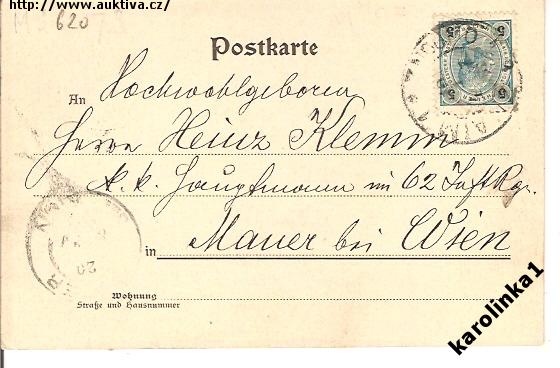 http://www.auktiva.cz/
620
Postkarte
5 5
5 5
An Hochwohlgeboren
Herrn Heinz Klemm
k. k. Hauptmann im 62 Inft Rgt.
in Mauer bei Wien
Wohnung
Straße und Hausnummer
karolinka1